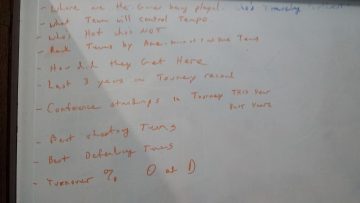 - Where are the Games being played.
- What Team will control Tempo
- Who's Hot who's NOT
- Rank Teams by
- How did they Get Here
- Last 3 years in Tourney record
- Conference standings in Tourney THIS Year
Past Years
- Best shooting Teams
- Best Defending Teams
- Turnover % O and D